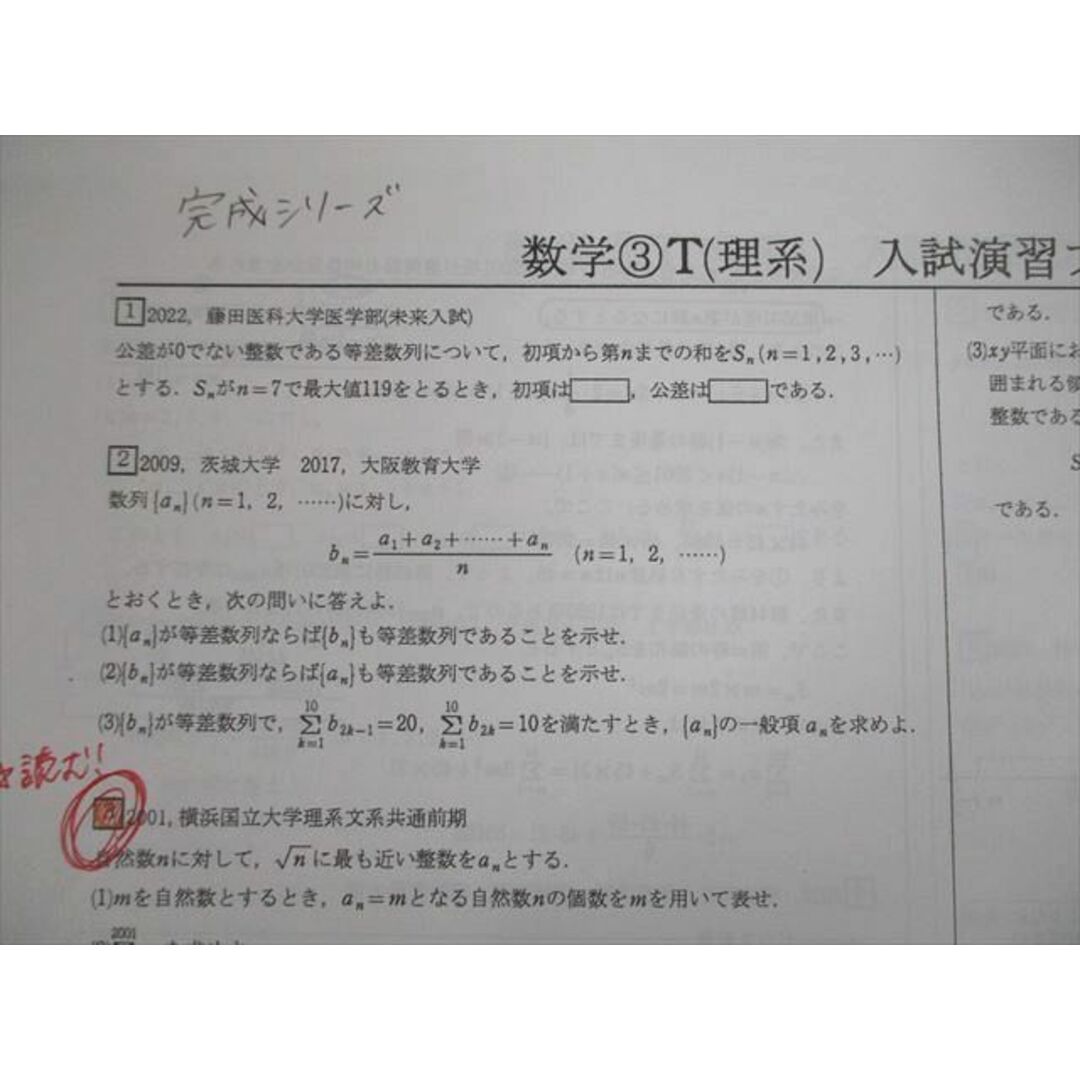 完成シリーズ
数学③T(理系) 入試演習
1 2022, 藤田医科大学医学部(未来入試)
公差が0でない整数である等差数列について, 初項から第nまでの和をSₙ(n=1,2,3,…)
とする. Sₙがn=7で最大値119をとるとき, 初項は□, 公差は□である.
2 2009, 茨城大学 2017, 大阪教育大学
数列{aₙ}(n=1, 2, ……)に対し,
bₙ=(a₁+a₂+……+aₙ)/n (n=1, 2, ……)
とおくとき, 次の問いに答えよ.
(1){aₙ}が等差数列ならば{bₙ}も等差数列であることを示せ.
(2){bₙ}が等差数列ならば{aₙ}も等差数列であることを示せ.
(3){bₙ}が等差数列で, $\sum_{k=1}^{10} b_{2k-1}=20$, $\sum_{k=1}^{10} b_{2k}=10$を満たすとき, {aₙ}の一般項 aₙを求めよ.
読む!
3 2001, 横浜国立大学理系文系共通前期
自然数nに対して, √n に最も近い整数をaₙとする.
(1)mを自然数とするとき, aₙ=mとなる自然数nの個数をmを用いて表せ.
2001
である.
(3)xy平面にお
囲まれる領
整数である
S
である.